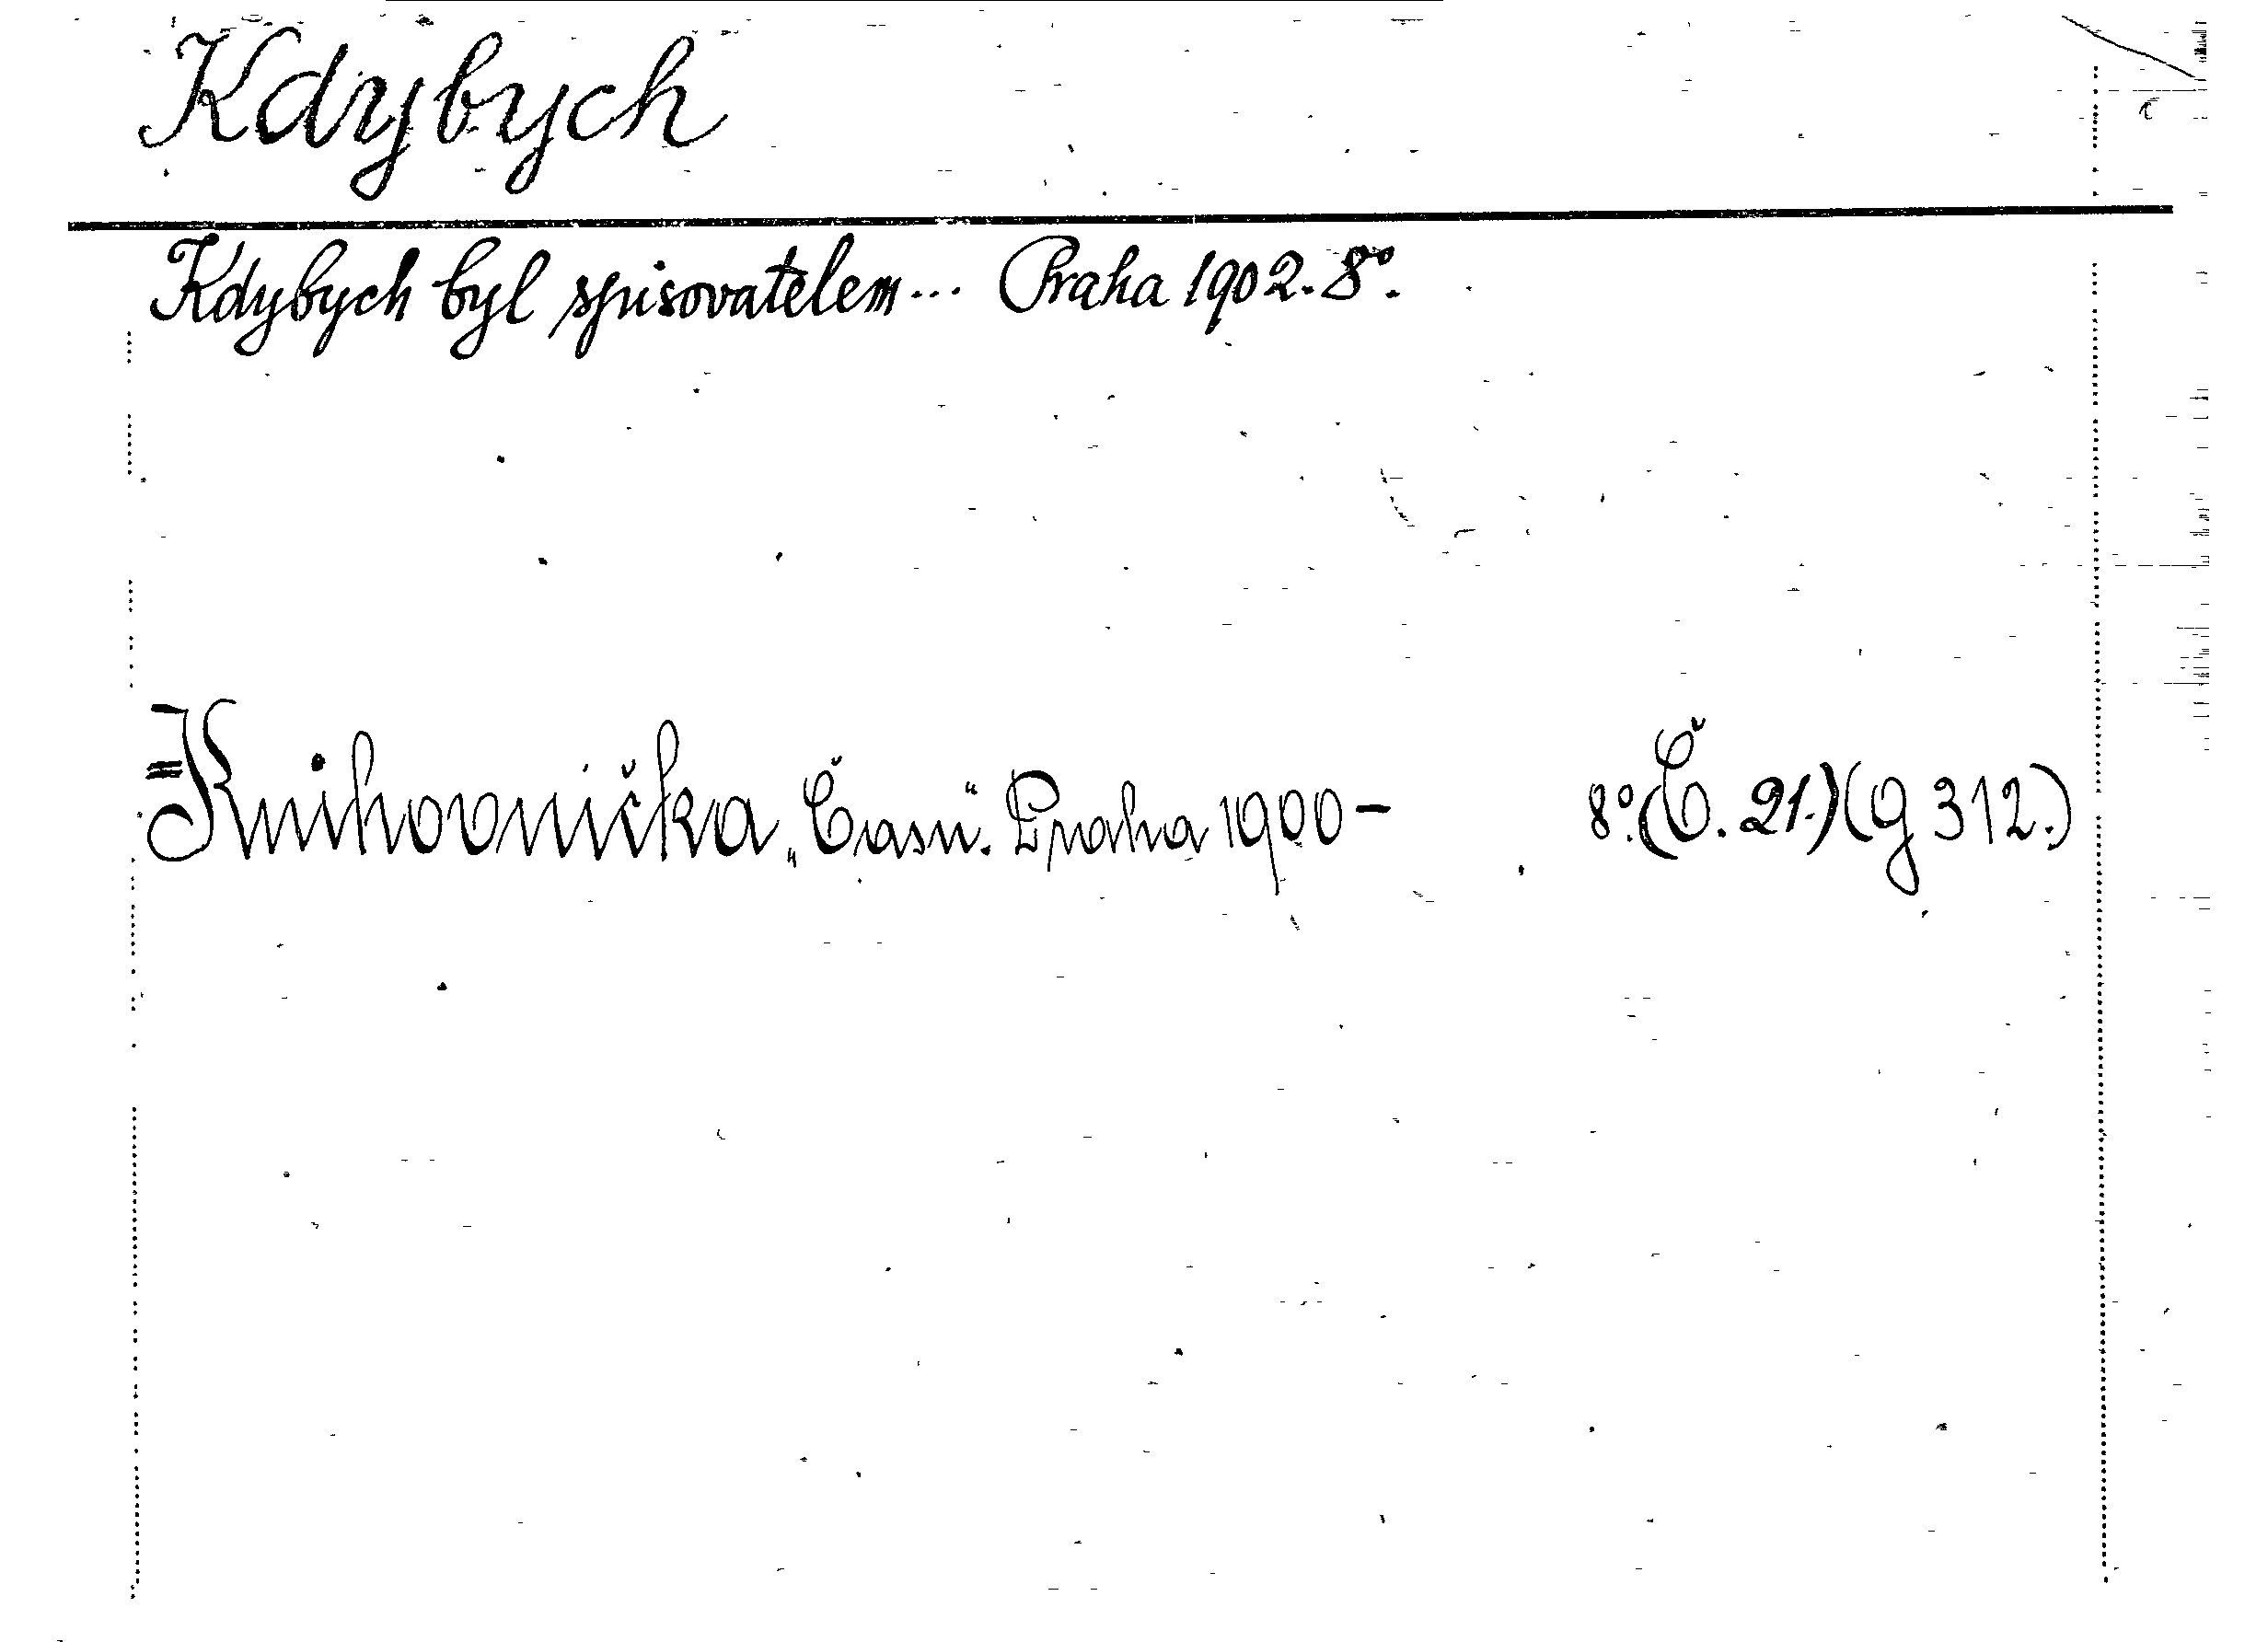 Kdybych
Kdybych byl spisovatelem... Praha 1902. 8°.
= Knihovnička „Času“. Praha 1900 - 8°. (Č. 21.) (g 312.)